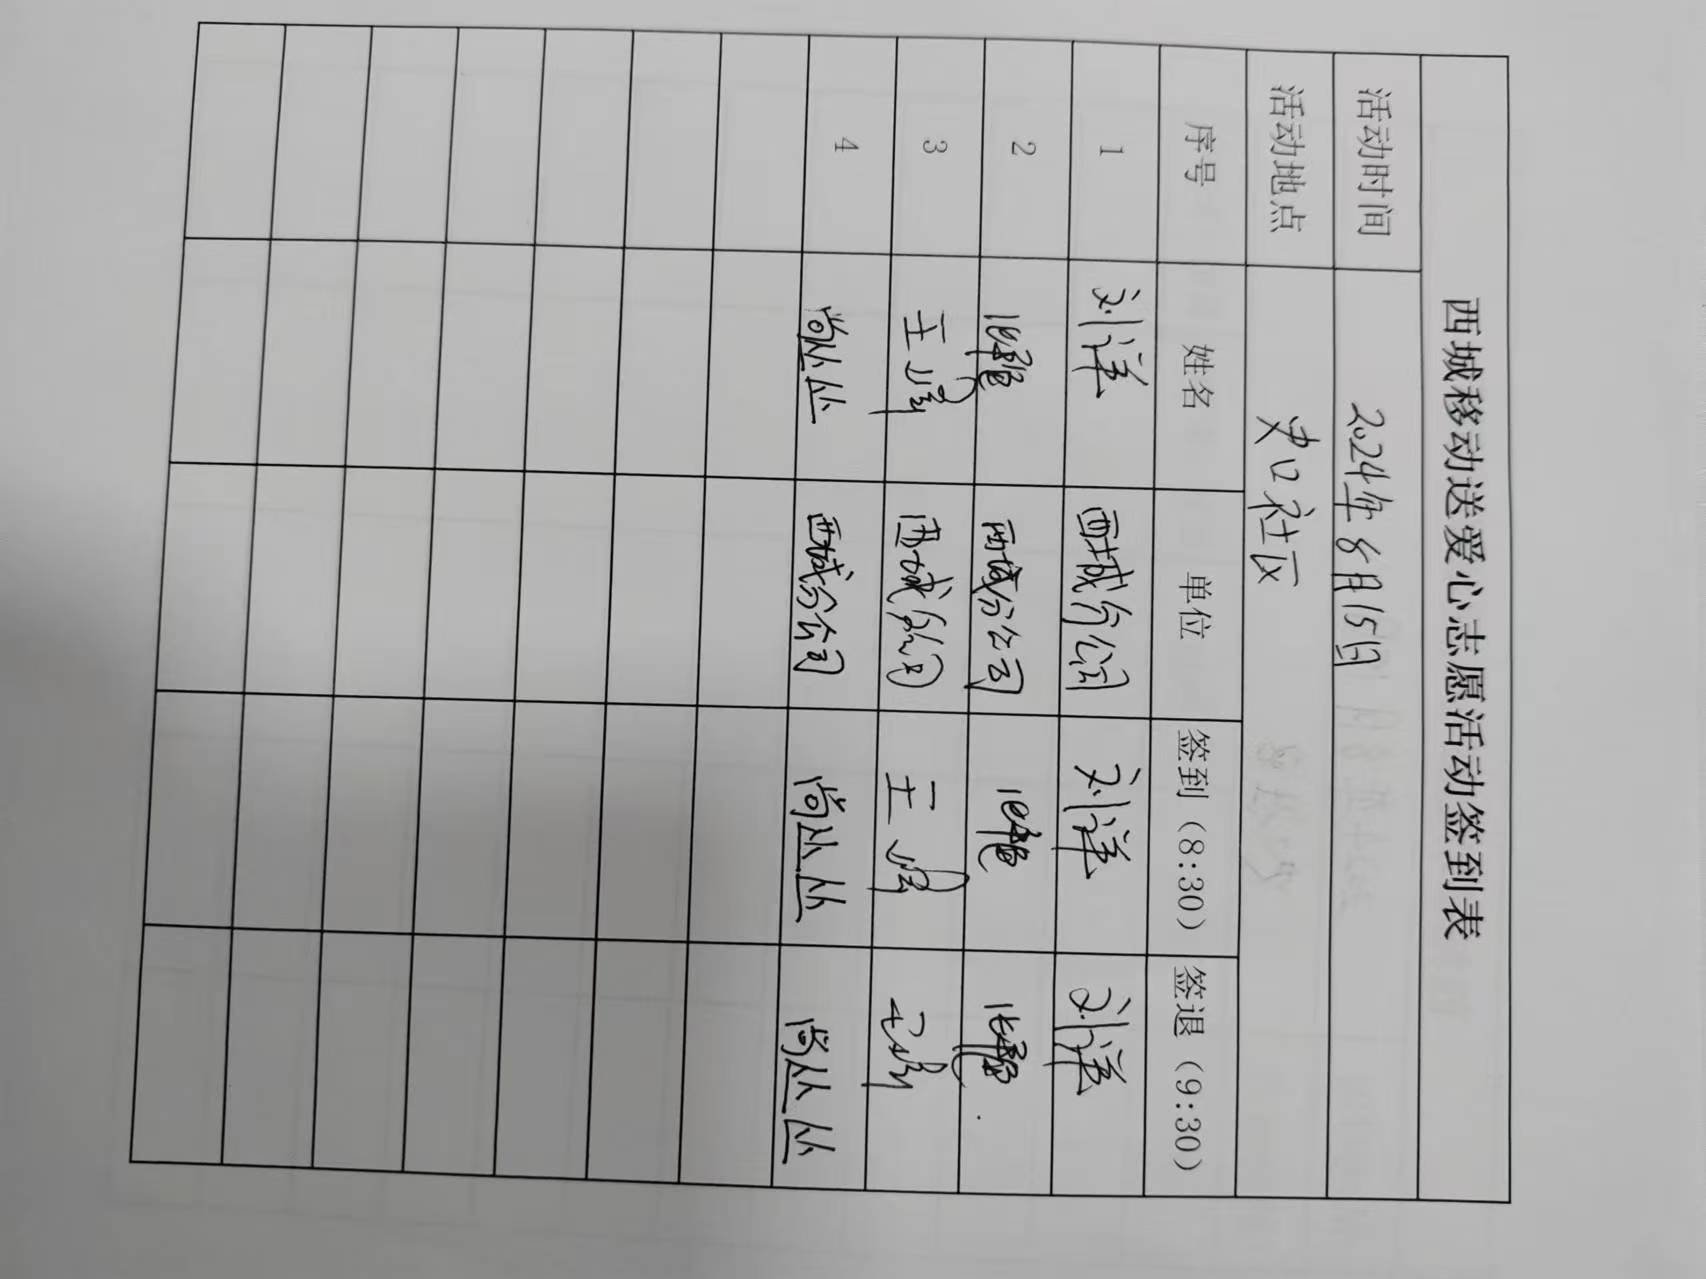 西城移动送爱心志愿活动签到表
活动时间 2024年8月15日
活动地点 史口社区
序号 姓名 单位 签到（8:30） 签退（9:30）
1 刘洋 西城分公司 刘洋 刘洋
2 西城分公司
3 王 西城分公司 王 王
4 尚丛丛 西城分公司 尚丛丛 尚丛丛